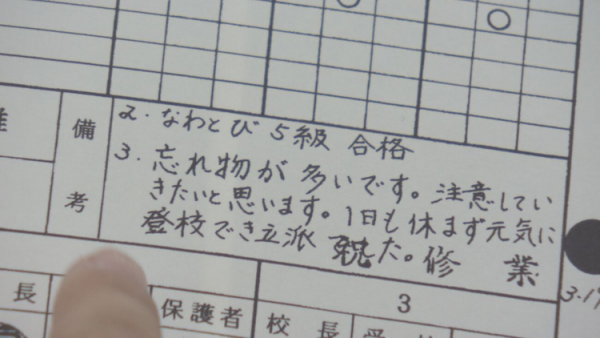 備考
2. なわとび 5級 合格
3. 忘れ物が多いです。注意してい
きたいと思います。1日も休まず元気に
登校でき立派 した。修業
3.19
長
保護者
3
校長